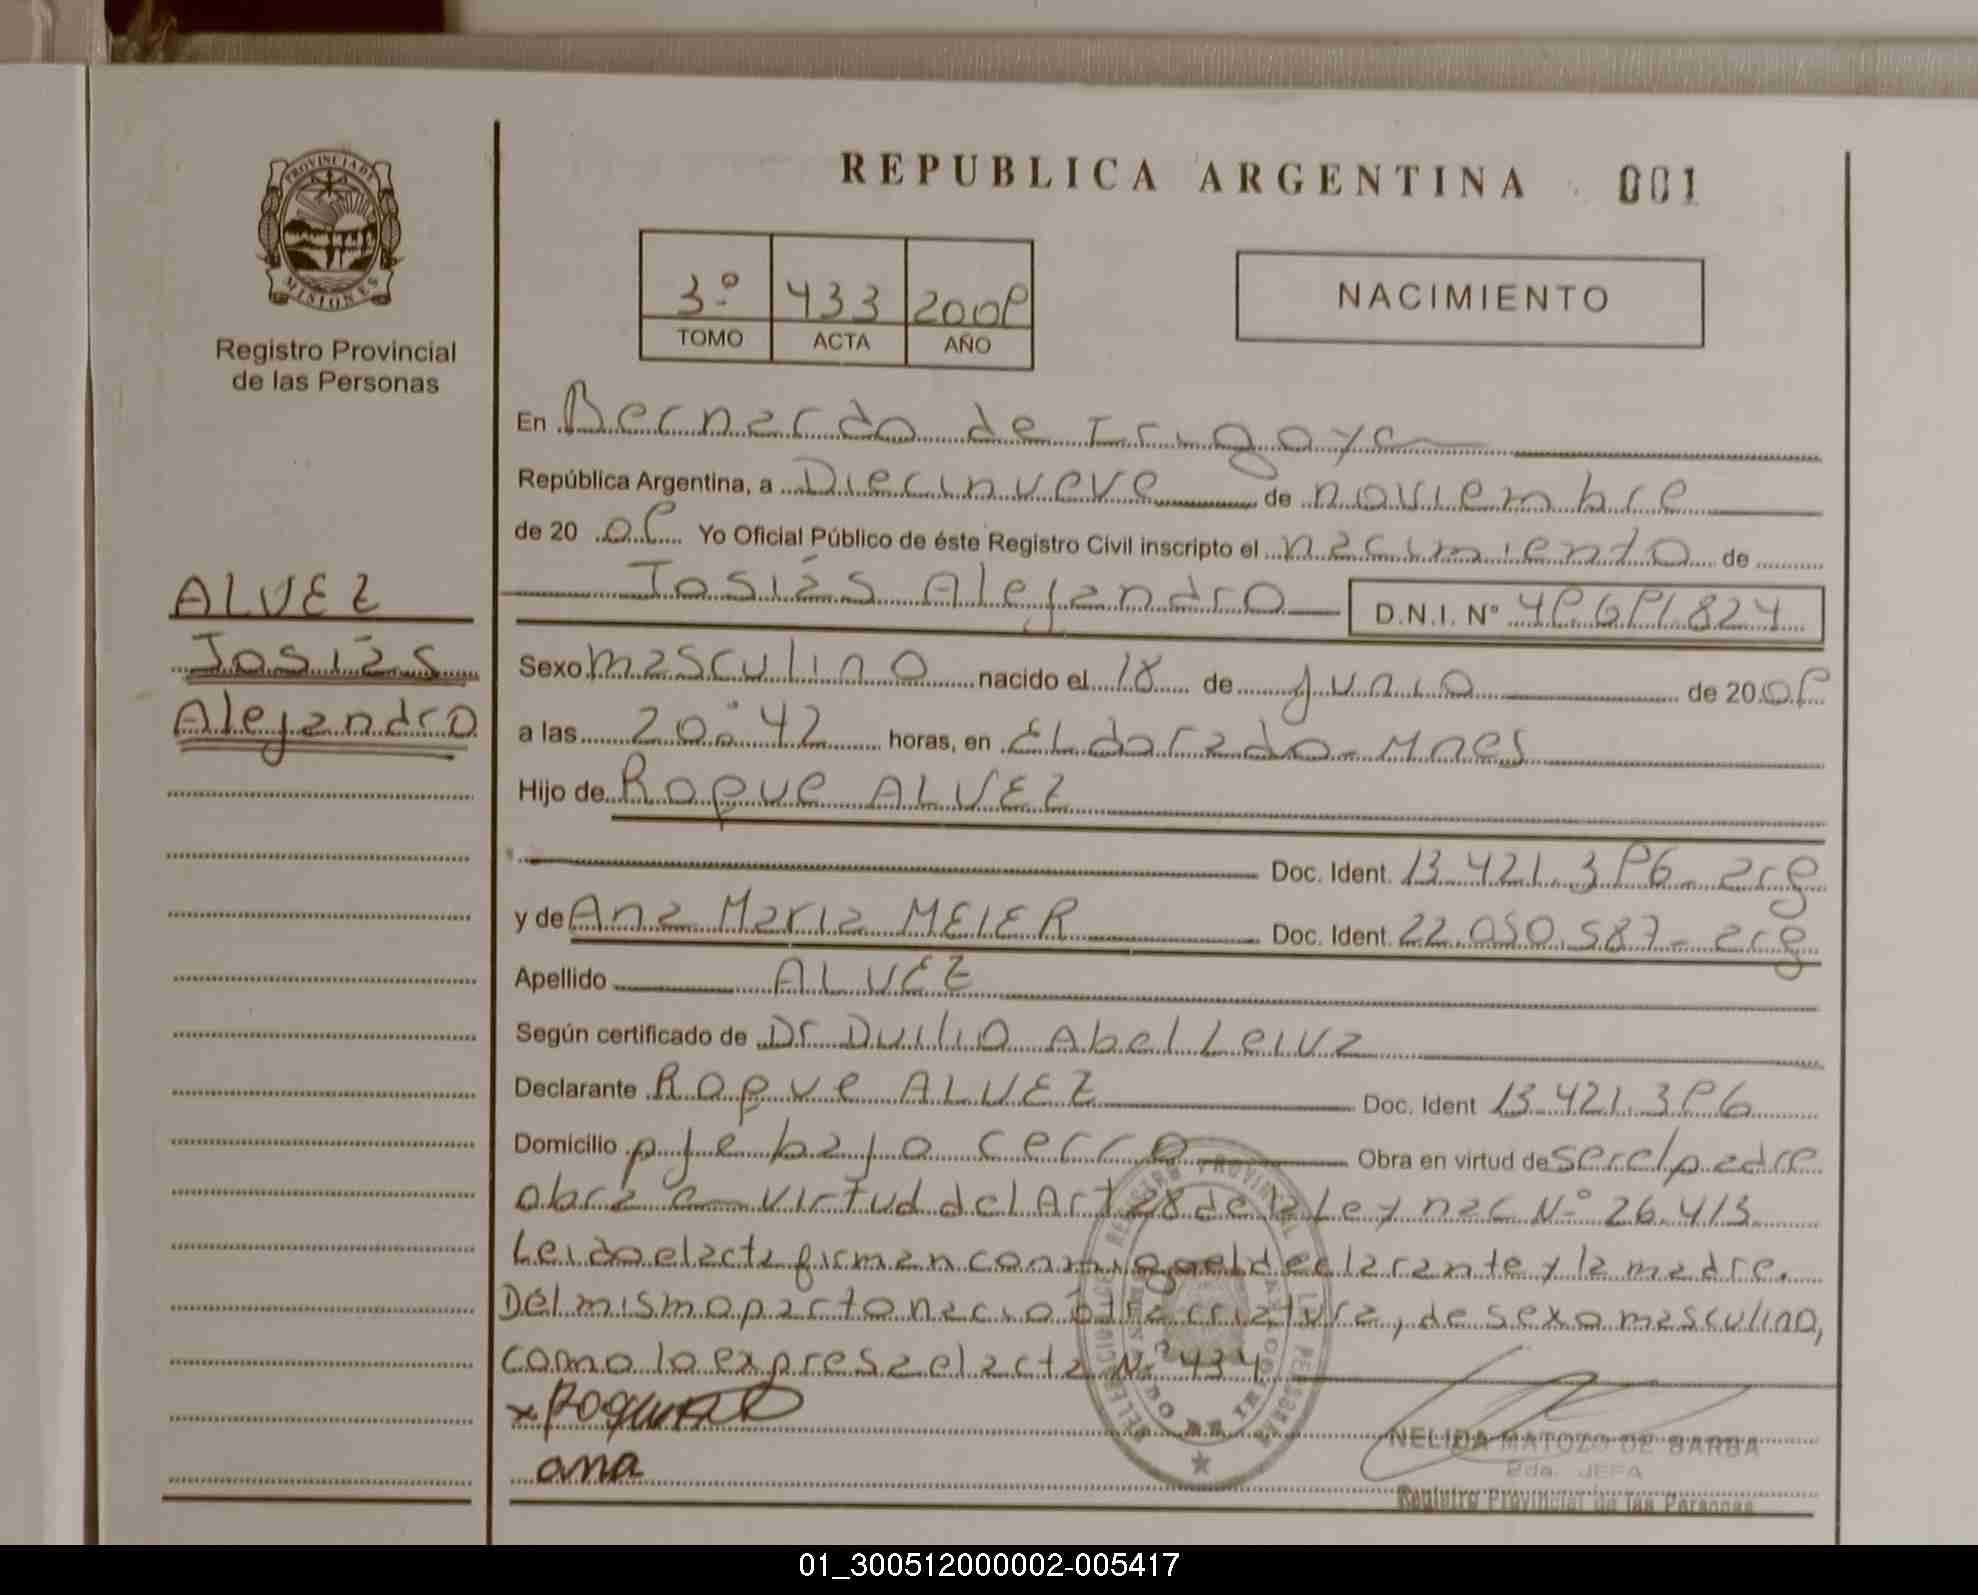 PROVINCIA DE
MISIONES
Registro Provincial
de las Personas
ALVEZ
Josiás
Alejandro
REPUBLICA ARGENTINA 001
3º 433 2009
TOMO ACTA AÑO
NACIMIENTO
En Bernardo de Irigoyen
República Argentina, a Diecinueve de noviembre
de 20 09 Yo Oficial Público de éste Registro Civil inscripto el nacimiento de
Josiás Alejandro D.N.I. Nº 49.691.824
Sexo masculino nacido el 18 de junio de 2009
a las 20:42 horas, en Eldorado-Mnes
Hijo de Roque ALVEZ
Doc. Ident. 13.421.396-arg
y de Ana Maria MEIER Doc. Ident. 22.050.587-arg
Apellido ALVEZ
Según certificado de Dr Duilio Abel Leiva
Declarante Roque ALVEZ Doc. Ident 13.421.396
Domicilio pje bajo cerro Obra en virtud de ser el padre
obra en virtud del Art 28 de la Ley nac Nº 26.413
Leido el acta firman conmigo el declarante y la madre.
Del mismo parto nacio otra criatura, de sexo masculino,
como lo expresa el acta Nº 434
x Roque
ana
NELIDA MATOZO DE BARBA
Pda. JEFA
Registro Provincial de las Personas
01_300512000002-005417